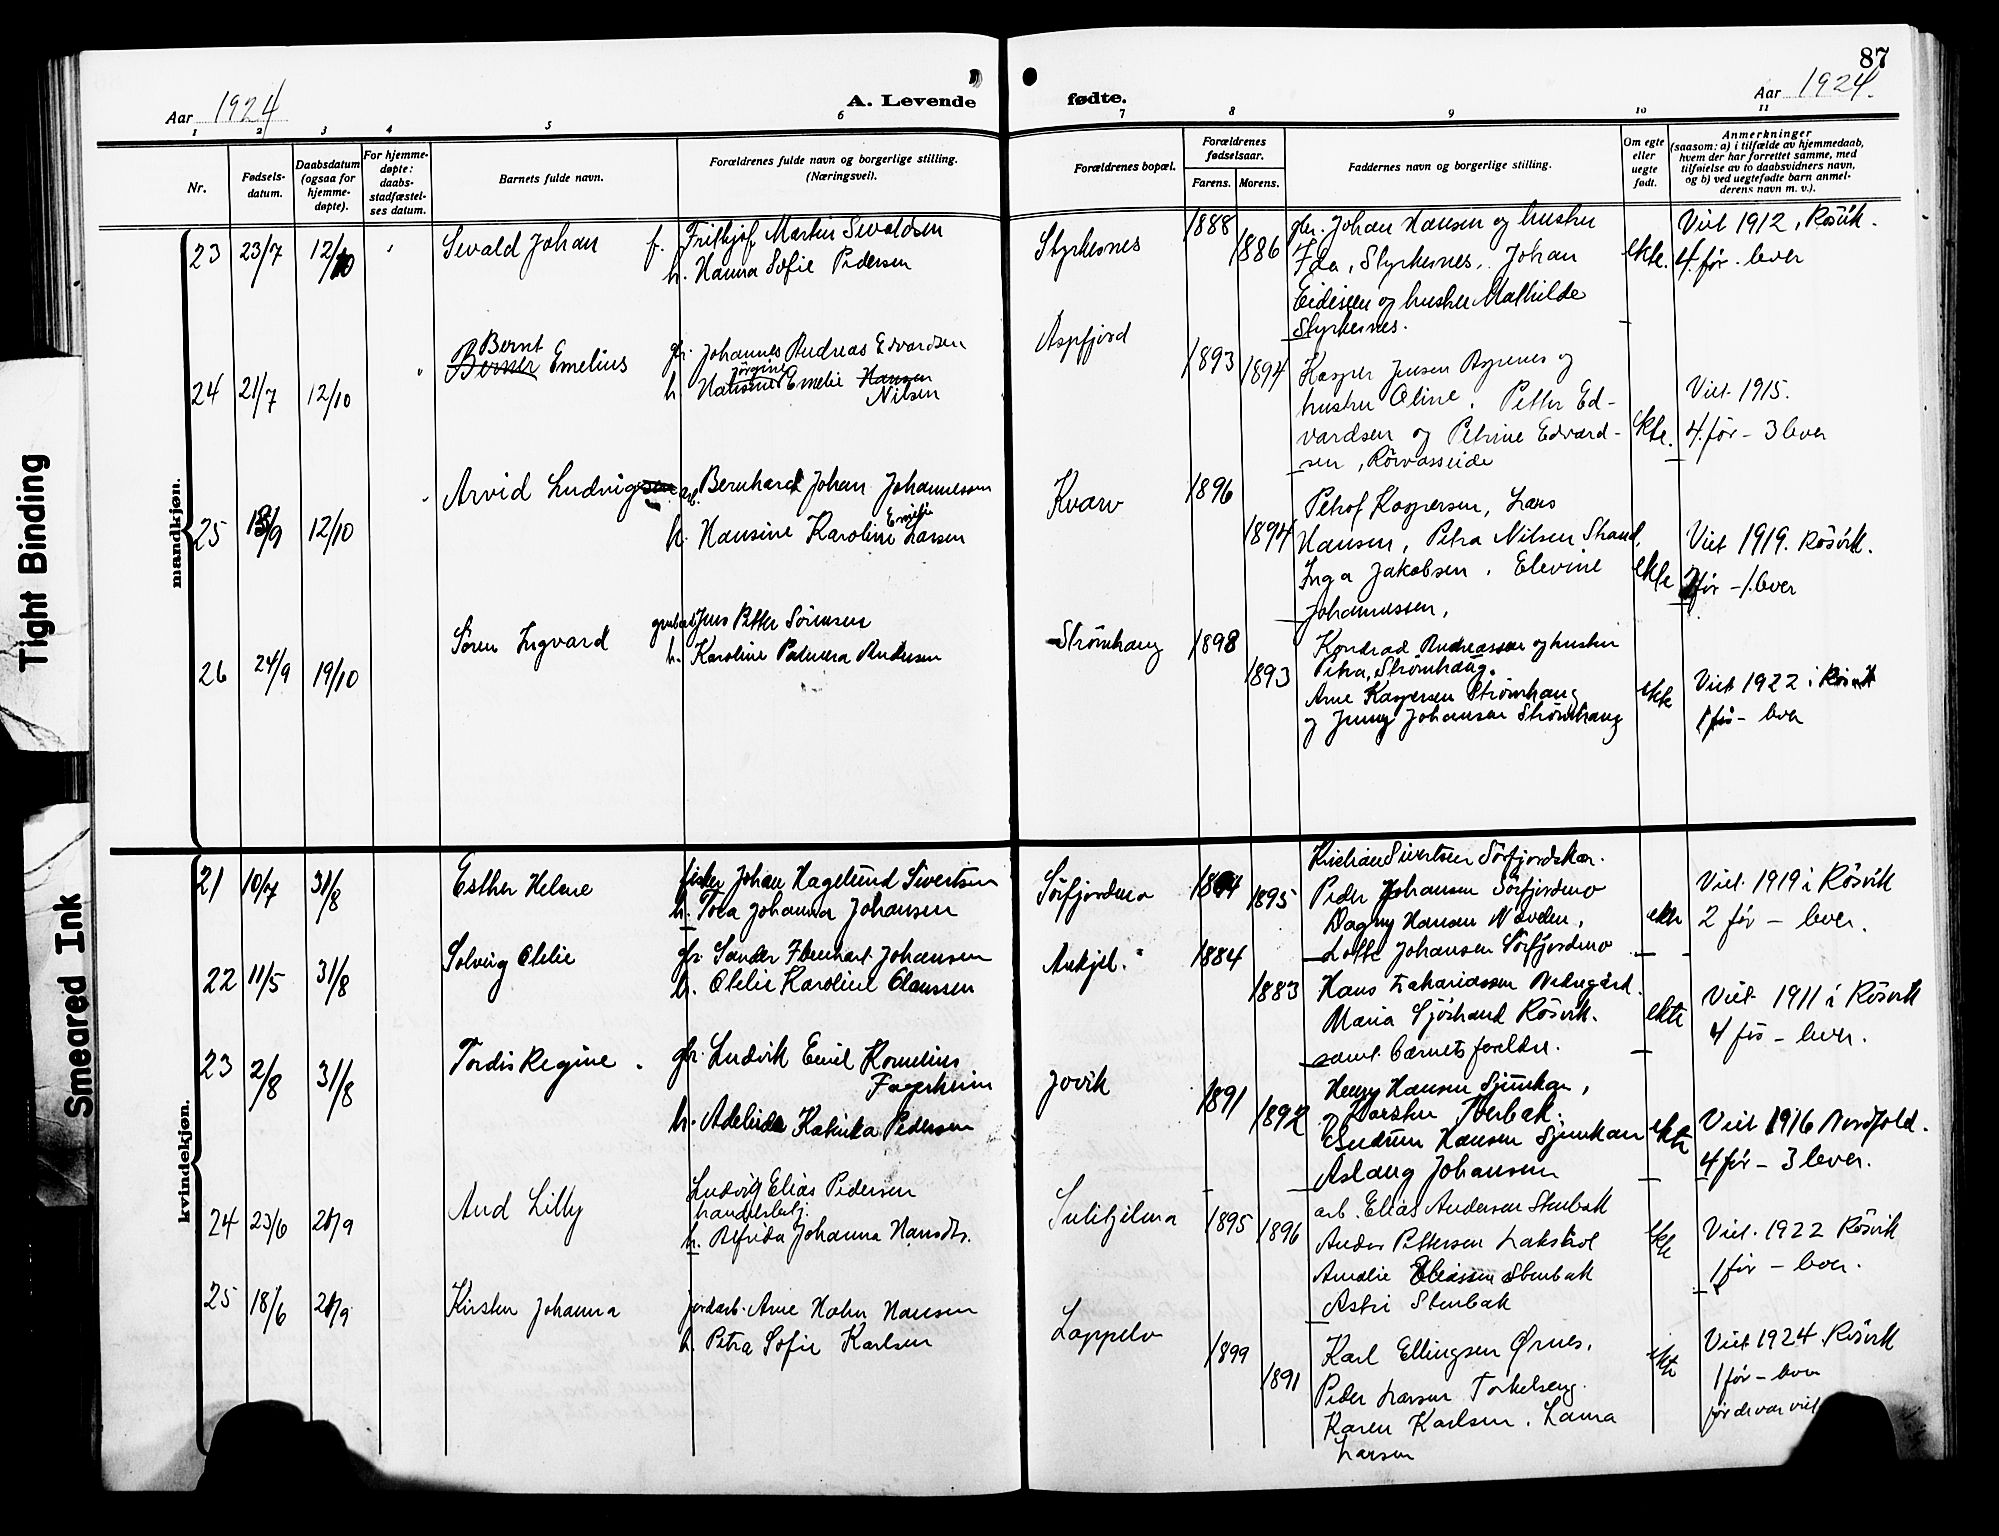 87
Aar 1924 A. Levende fødte. Aar 1924.
1 2 3 4 5 6 7 8 9 10 11
Nr.
Fødsels-
datum.
Daabsdatum
(ogsaa for
hjemme-
døpte).
For hjemme-
døpte:
daabs-
stadfæstel-
ses datum.
Barnets fulde navn.
Forældrenes fulde navn og borgerlige stilling.
(Næringsvei).
Forældrenes bopæl.
Forældrenes
fødselsaar.
Farens. Morens.
Faddernes navn og borgerlige stilling.
Om egte
eller
uegte
født.
Anmerkninger
(saasom: a) i tilfælde av hjemmedaab,
hvem der har forrettet samme, med
tilføielse av to daabsvidners navn,
og b) ved uegtefødte barn anmel-
derens navn m. v.).
mandkjøn.
23 23/7 12/10
Sevald Johan
f. Fritkjof Martin Sevaldsen
h. Hanna Sofie Pedersen
Styrkesnes
1888
1886
gbr. Johan Hansen og hustru
Ida, Styrkesnes, Johan
Eidissen og hustru Mathilde
Styrkesnes.
ekte.
Viet 1912, Røsvik.
4 før - lever
24 21/7 12/10
Bernt
Berner Emelius
gbr. Johannes Andreas Edvardsen
Jørgine
h. Hansine Emelie Hansen
Nilsen
Aspfjord
1893
1894
Kasper Jensen Aspenes og
hustru Oline. Petter Ed-
vardsen og Petrine Edvard-
sen, Rørvasseide
ekte.
Viet 1915.
4 før - 3 lever
25 12/10
Arvid Ludvigsen
arb. Bernhard Johan Johannessen
Emelie
h. Hansine Karoline Larsen
Kvarv
1896
1894
Petrof Kaspersen, Lars
Hansen, Petra Nilsen Strand,
Inga Jakobsen, Elevine
Johannessen,
ekte
Viet 1919. Røsvik.
før - 1 lever
26 24/9 19/10
Søren Ingvard
grubearb. Jens Petter Sørensen
h. Karoline Andersen
Strømhaug
1898
1893
Konrad Andreassen og hustru
Petra, Strømhaug.
Arne Kaspersen Strømhaug
og Jenny Johansen Strømhaug
ekte
Viet 1922 i Røsvik
1 før - lever
kvindekjøn.
21 10/7 31/8
Esther Helene
fisker Johan Hagelund Sivertsen
h. Tora Johanna Johansen
Sørfjordmo
1894
1895
Kristian Sivertsen Sørfjordskar.
Peder Johansen Sørfjordmo
Dagny Hansen Naveren,
Lotte Johansen Sørfjordmo
ekte
Viet 1919 i Røsvik
2 før - lever.
22 11/5 31/8
Solveig Otelie
gbr. Sander Johansen
h. Otelie Karoline Clanssen
1884
1883
Hans Zakariassen Nedregård.
Maria Sjøstrand Røsvik.
samt barnets foreldre.
ekte
Viet 1911 i Røsvik
4 før - lever.
23 2/8 31/8
Tordis Regine
gbr. Ludvik Emil Kornelius
Fagerheim
h. Adelinda Katinka Pedersen
Jovik
1891
1892
Henry Hansen Sjunkan,
og Torsten Tverbak.
Gudrun Hansen Sjunkan
Aslaug Johansen
ekte
Viet 1916 Nordfold.
4 før - 3 lever.
24 23/6 21/9
Aud Lilly
Ludvig Elias Pedersen
handelsbetj.
h. Alfrida Johanna Hansdtr.
Sulitjelma
1895
1896
arb. Elias Andersen Stenbak
Anders Pettersen Lakshol
Amalie Eliassen Stenbak
Astri Stenbak
ekte
Viet. 1922 Røsvik
1 før - lever.
25 18/6 21/9
Kirsten Johanna
jordarb. Arne Hansen
h. Petra Sofie Karlsen
Lappelv
1899
1891
Karl Ellingsen Ørnes.
Peder Larsen Torkelseng.
Karen Karlsen. Laura
Larsen
ekte
Viet 1924 Røsvik
1 før - lever
før de var viet
Tight Binding
Smeared Ink